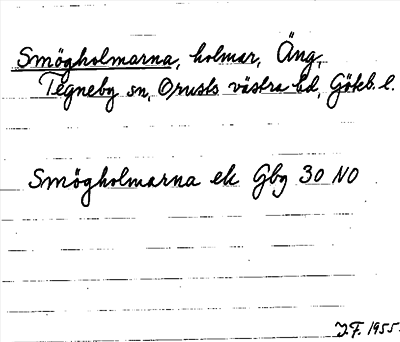 Smögholmarna, holmar, Äng,
Tegneby sn, Orusts västra hd, Göteb. l.
Smögholmarna ek Gbg 30 NO
J.F. 1955